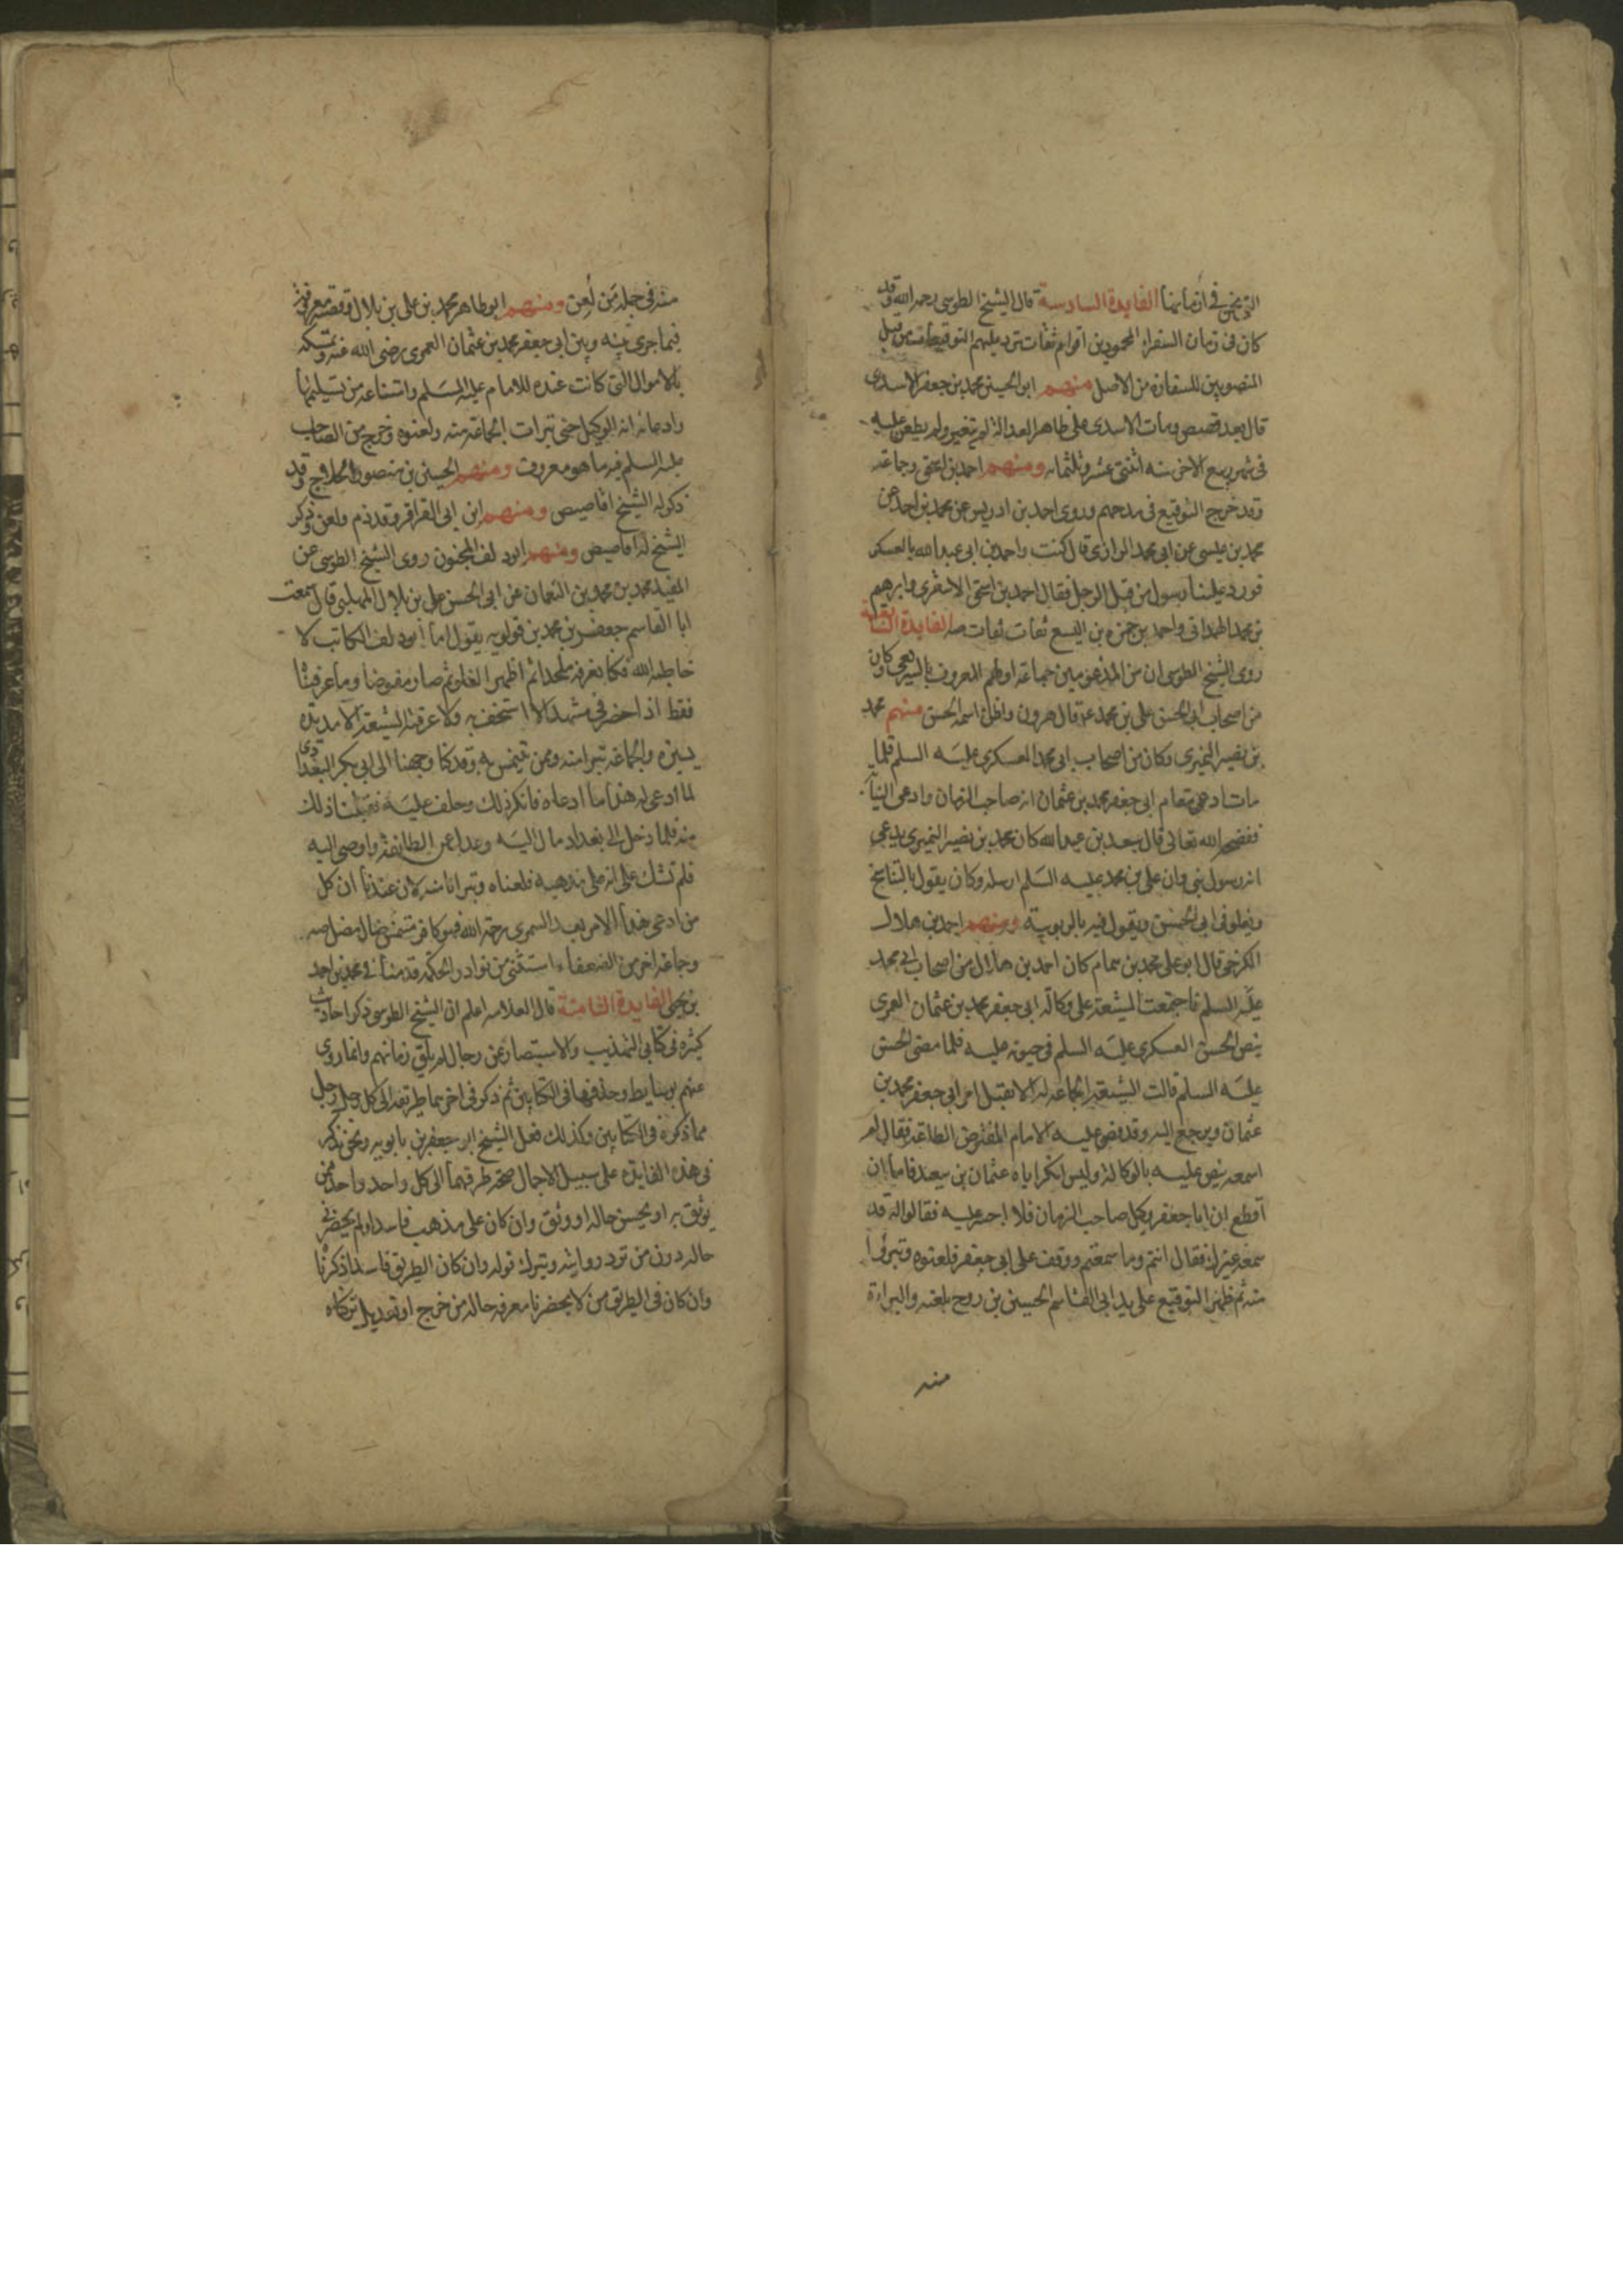 التي نحن في ازماننا الفايدة السادسة قال الشيخ الطوسي رحمه الله وقد
كان في زمان السفراء المحمودين اقوام ثقات ترد عليهم التوقيعات من قبل
المنصوبين للسفارة من الاصل منهم ابو الحسين محمد بن جعفر الاسدي
قال بعد قصص ومات الاسدي على ظاهر العدالة لم يتغير ولم يطعن عليه
في شهر ربيع الاخر سنه اثنتي عشر وثلثمائه ومنهم احمد بن اسحق وجماعة
وقد خرج التوقيع في مدحهم وروى احمد بن ادريس عن محمد بن احمد عن
محمد بن عيسى عن ابي محمد الرازي قال كنت واحمد بن ابي عبد الله بالعسكر
فورد علينا رسول من قبل الرجل فقال احمد بن اسحق الاشعري وابرهيم
بن محمد الهمداني واحمد بن حمزه بن اليسع ثقات ثقات صه الفايدة السابعة
روى الشيخ الطوسي ان من المذمومين جماعة اولهم المعروف بالسريعي وكان
من اصحاب ابي الحسن علي بن محمد عم قال هرون واظن اسمه الحسن منهم محمد
بن نصير النميري وكان من اصحاب ابي محمد العسكري عليه السلم فلما
مات ادعى مقام ابي جعفر محمد بن عثمان انه صاحب الزمان وادعى النيا
ففضحه الله تعالى قال سعد بن عبد الله كان محمد بن نصير النميري يدعي
انه رسول نبي وان علي بن محمد عليه السلم ارسله وكان يقول بالتناسخ
ويغلو في ابي الحسن ويقول فيه بالربوبية ومنهم احمد بن هلال
الكرخي قال ابو علي محمد بن همام كان احمد بن هلال من اصحاب ابي محمد
عليه السلم فاجتمعت الشيعة على وكالة ابي جعفر محمد بن عثمان العمري
بنص الحسن العسكري عليه السلم في حيوته عليه فلما مضى الحسن
عليه السلم قالت الشيعة الجماعة له الا تقبل امر ابي جعفر محمد بن
عثمان وترجع اليه وقد نص عليه الامام المفترض الطاعة فقال لم
اسمعه ينص عليه بالوكالة وليس انكر اباه عثمان بن سعيد فاما ان
اقطع ان ابا جعفر وكيل صاحب الزمان فلا اجسر عليه فقالوا له قد
سمعه غيرك فقال انتم وما سمعتم ووقف على ابي جعفر فلعنوه وتبرؤا
منه ثم ظهر التوقيع على يد ابي القاسم الحسين بن روح بلعنه والبراءة
منه
منه في جملة من لعن ومنهم ابو طاهر محمد بن علي بن بلال وقصته معروفة
فيما جرى بينه وبين ابي جعفر محمد بن عثمان العمري رضي الله عنه وتمسكه
بالاموال التي كانت عنده للامام عليه السلم وامتناعه من تسليمها
وادعائه انه الوكيل حتى تبرات الجماعة منه ولعنوه وخرج من الصاحب
عليه السلم فيه ما هو معروف ومنهم الحسين بن منصور الحلاج وقد
ذكر له الشيخ اقاصيص ومنهم ابن ابي العزاقر وقد ذم ولعن وذكر
الشيخ له اقاصيص ومنهم ابو دلف المجنون روى الشيخ الطوسي عن
المفيد محمد بن محمد بن النعمان عن ابي الحسن علي بن بلال المهلبي قال سمعت
ابا القاسم جعفر بن محمد بن قولويه يقول اما ابو دلف الكاتب لا
حاطه الله فكنا نعرفه ملحدا ثم اظهر الغلو ثم صار مفوضا وما عرفناه
فقط اذا حضر في مشهد الا استخف به ولا عرفته الشيعة الا مدة
يسيره والجماعة تتبرا منه وممن تنمس به وقد كنا وجهنا الى ابي بكر البغدادي
لما ادعى له هذا ما ادعاه فانكر ذلك وحلف عليه فقبلنا ذلك
منه فلما دخل الى بغداد مال اليه وعدل عن الطايفة واوصى اليه
فلم نشك على انه على مذهبه فلعناه وتبرانا منه لان عندنا ان كل
من ادعى هذا الامر بعد السمري رحمة الله فهو كافر متمنس ضال مضل صه
وجماعة اخر من الضعفاء استثني من نوادر الحكمة قدمنا في محمد بن احمد
بن يحيى الفايدة الثامنة قال العلامه اعلم ان الشيخ الطوسي ذكر احاديث
كثيره في كتابي التهذيب والاستبصار عن رجال لم يلق زمانهم وانما روى
عنهم بوسايط وحذفها في الكتابين ثم ذكر في اخرهما طريقه الى كل رجل رجل
مما ذكره في الكتابين وكذلك فعل الشيخ ابو جعفر بن بابويه ونحن نذكر
في هذه الفايده على سبيل الاجمال صحة طرقهما الى كل واحد واحد ممن
يوثق به او يحسن حاله او وثق وان كان على مذهب فاسد او لم يحضرني
حاله دون من ترد روايته ويترك قوله وان كان الطريق فاسدا ذكرناه
وان كان في الطريق من لا يحضرنا معرفه حاله من جرح او تعديل تركناه